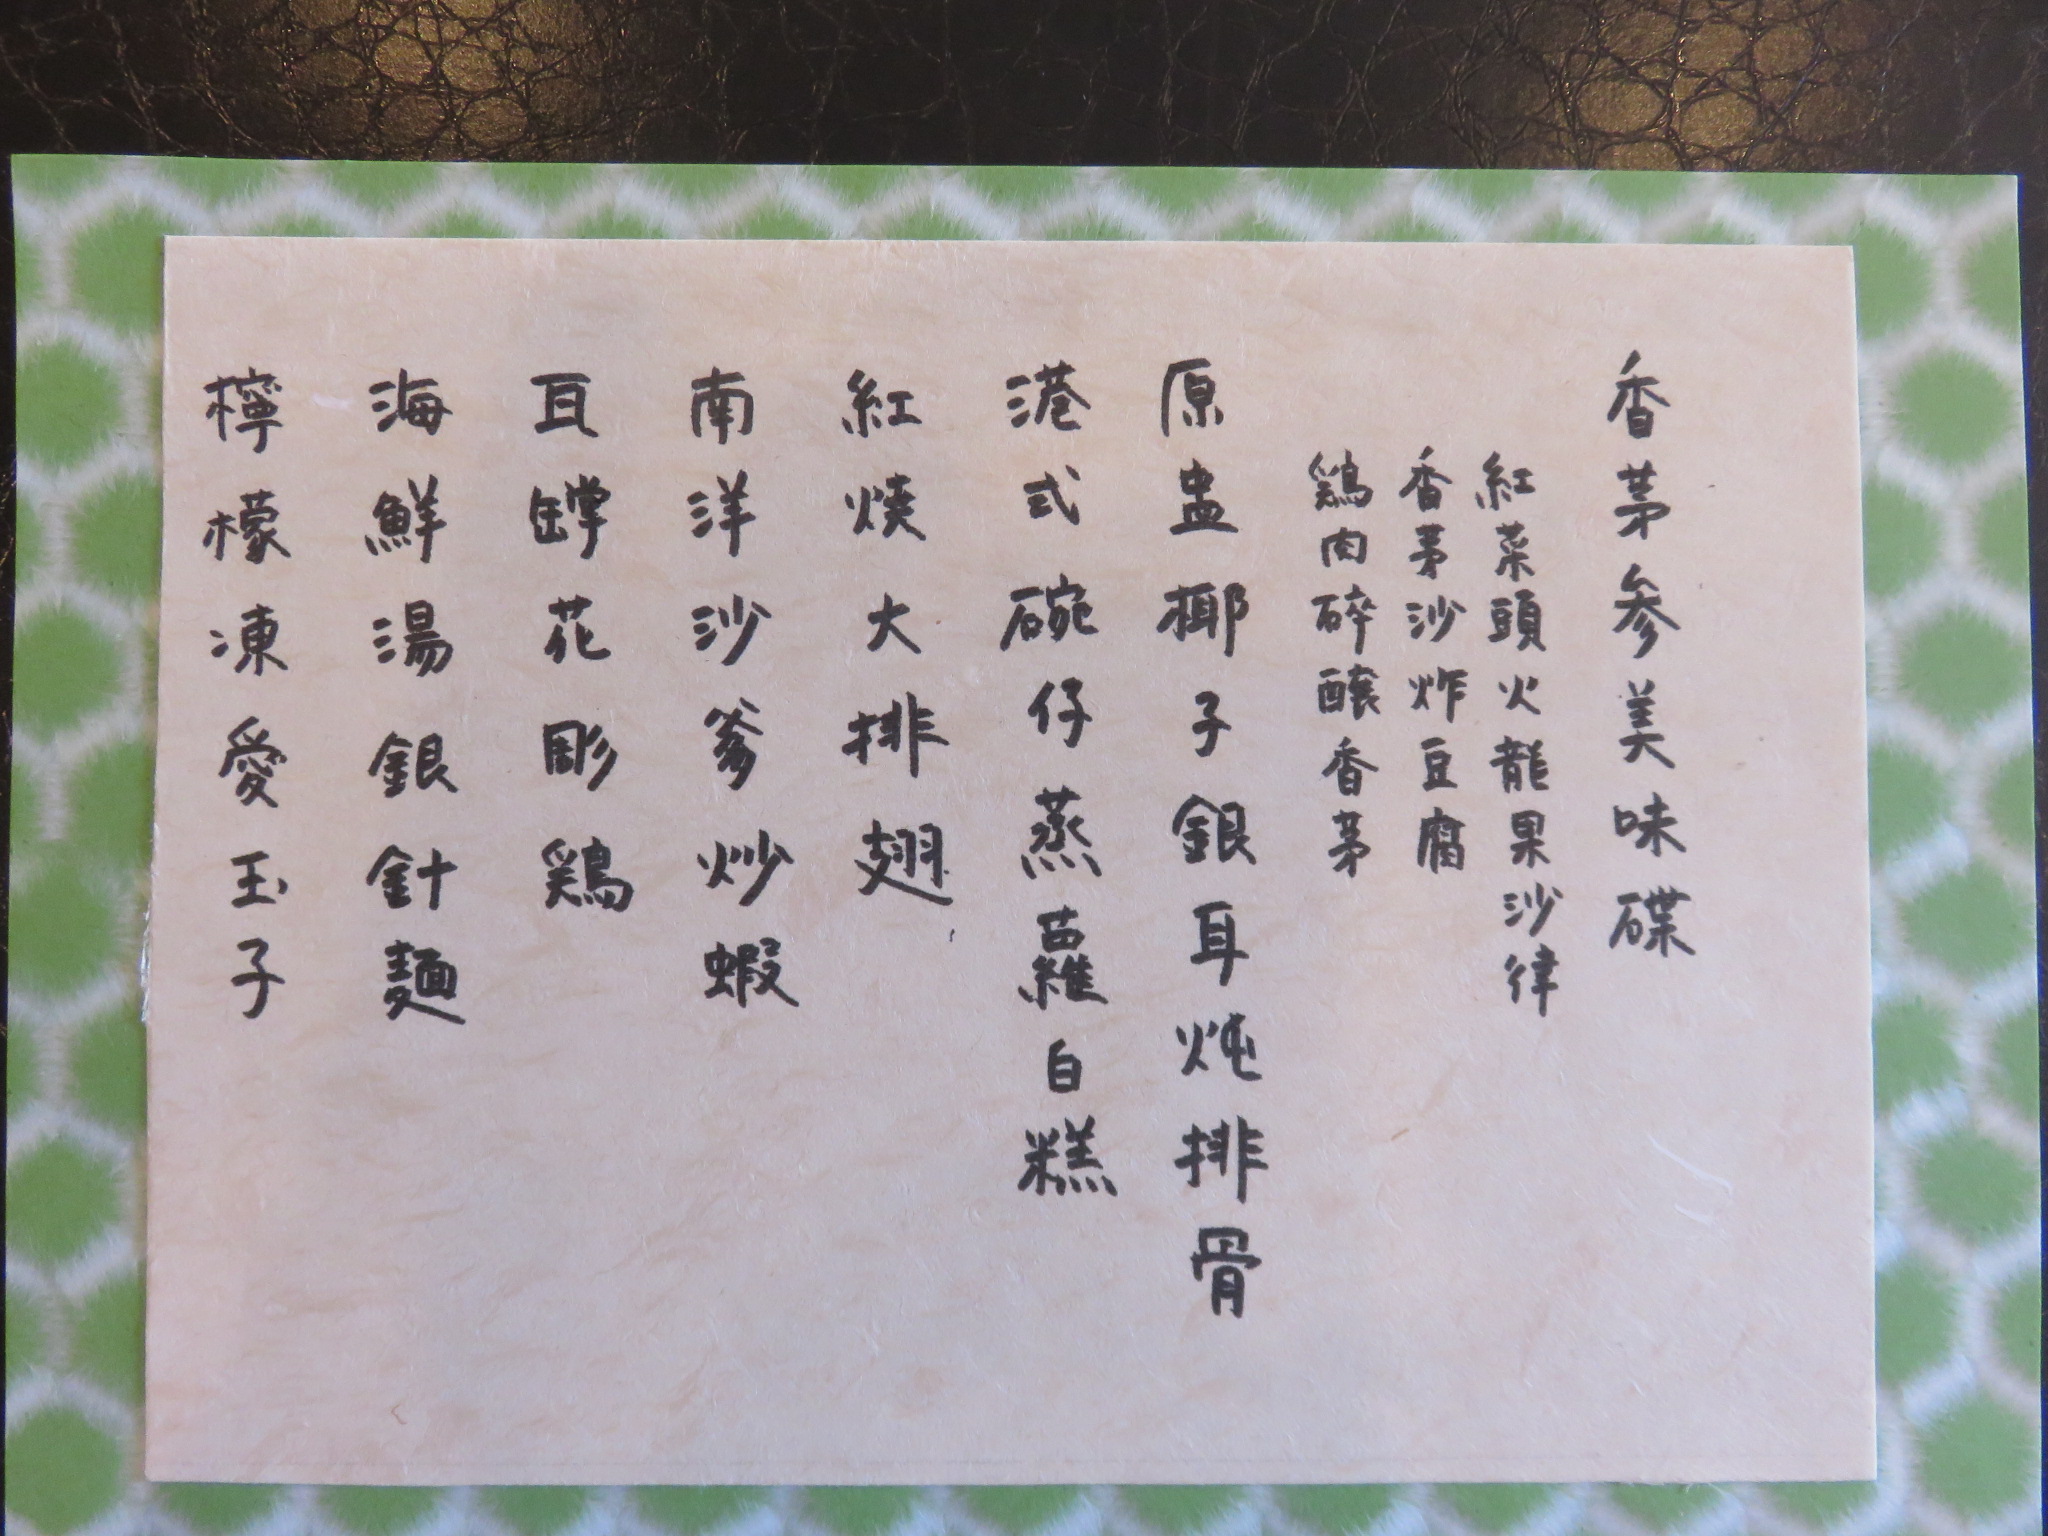 香茅参美味碟
紅菜頭火龍果沙律
香茅沙炸豆腐
鶏肉碎釀香茅
原盅椰子銀耳炖排骨
港式碗仔蒸蘿白糕
紅燒大排翅
南洋沙爹炒蝦
瓦罉花彫鶏
海鮮湯銀針麵
檸檬凍愛玉子